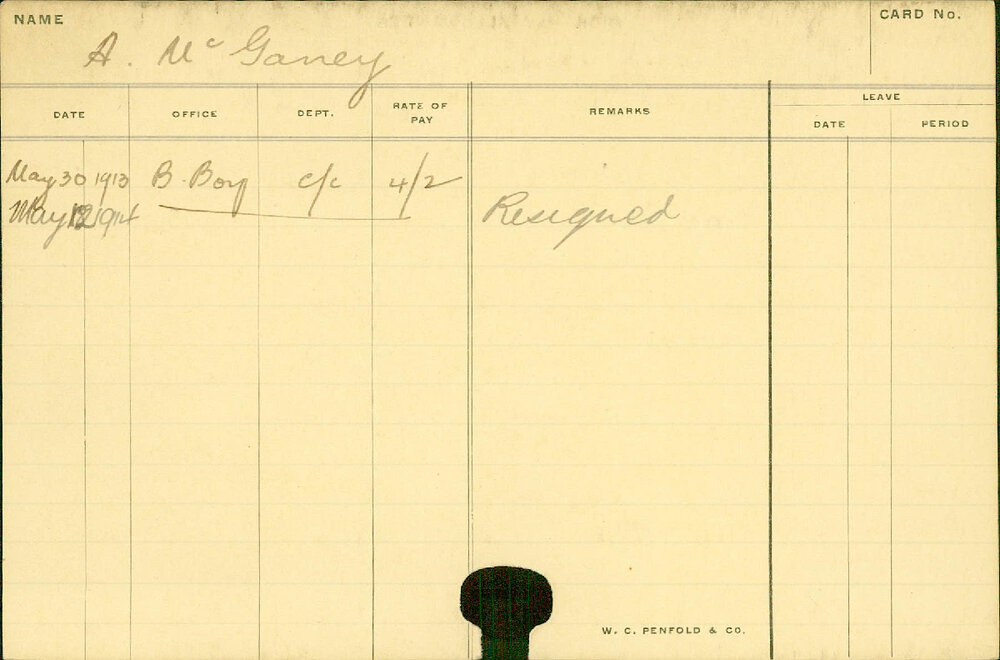 NAME
CARD No.
A. McGaney
DATE OFFICE DEPT. RATE OF PAY REMARKS LEAVE
DATE PERIOD
May 30 1913 B. Boy c/c 4/2
May 12 1914 Resigned
W. C. PENFOLD & CO.